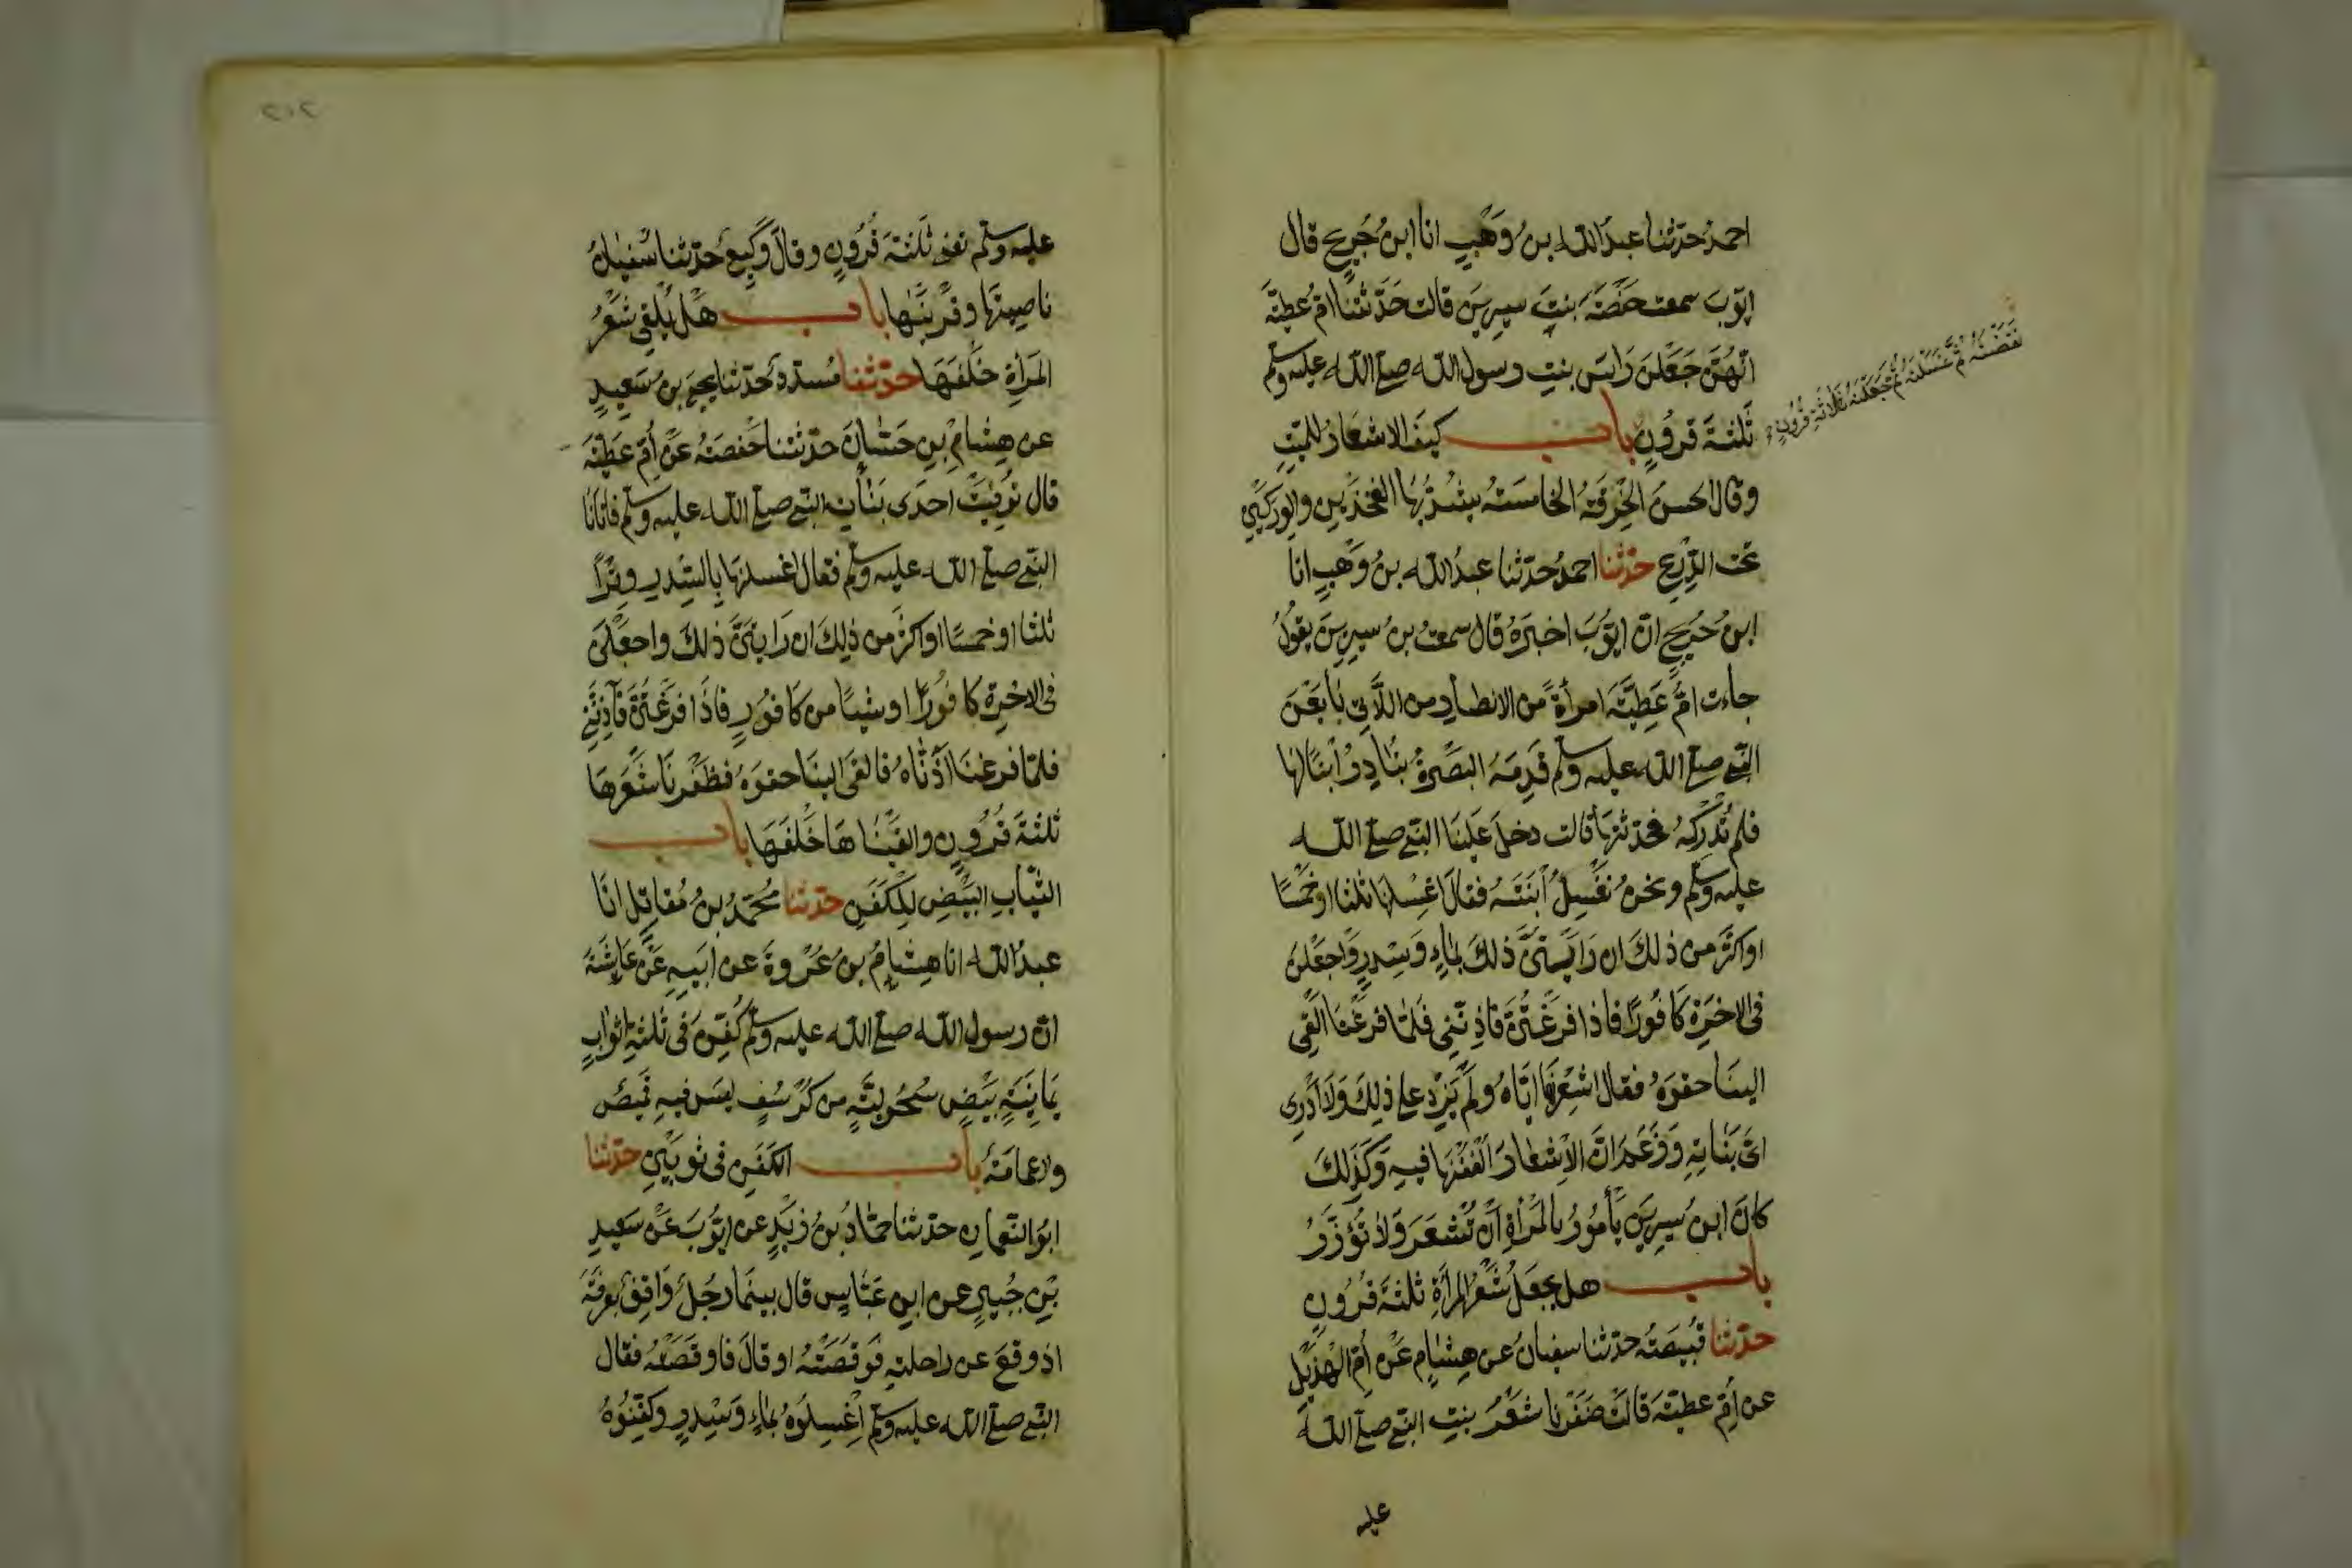 احمدُ حدّثنا عبدُ الله بنُ وَهْبٍ انا ابنُ جُرَيجٍ قال
ايّوبَ سمعت حَفْصَةَ بنتَ سيرينَ قالت حَدَّثَتْنَا امّ عطيّةَ
انّهُنَّ جَعَلْنَ رَاسَ بنتِ رسول الله صلى الله عليه وسلم
ثَلثةَ قرُونٍ باب كيفَ الاشعارُ للميّتِ
نَقَضْنَهُ ثُمَّ غَسَلْنَهُ ثُمَّ جَعَلْنَهُ ثَلَاثَةَ قُرُونٍ
وقال الحسنُ الخِرْقَةُ الخامسَةُ يشُدّ بُهَا الفخذَينِ والوَركَينِ
تحت الدِّرْعِ حدّثنا احمدُ حدّثنا عبدُ الله بنُ وَهْبٍ انا
ابنُ جُرَيجٍ انّ ايّوُبَ اخبرَهُ قال سمعتُ بنُ سيرينَ يقولُ
جاءت امُّ عَطِيَّةَ امرأةً من الانصارِ من اللَّاتِي بَايَعْنَ
النبي صلى الله عليه وسلم قَدِمَةُ البصْرةُ تُبَادِرُ ابْنًا لها
فلم تُدْرِكْهُ فحدّثتهَا قالت دخلَ عَلَيْنَا النبي صلى الله
عليه وسلم ونحنُ نُغَسِلُ ابْنَتَهُ فقالَ اغْسِلنهَا ثلثا او خَمْسًا
او اكثرَ من ذلكَ ان رَايْتُنَّ ذلكَ بماءٍ وَسِدرٍ وَاجعَلْنَ
فى الاخِرَةِ كَافُورًا فاذا فرَغْتُنَّ فَاذِنَّنِى فَلَمّا فرغْنَا القَى
الينَا حقوَهُ فقال اشعِرْنَهَا ايّاهُ ولمْ يَزِدْ على ذلكَ وَلَا اَدْرِى
اىّ بنَاتِهِ وَزَعَمَ انَّ الاِشعارَ الْفُفْنَهَا فيهِ وَكَذلكَ
كانَ ابنُ سيرينَ يَأمُرُ بالمرْأةِ اَنْ تُشْعَرَ وَلا تُؤزَرُ
باب هل يجعَلُ شَعْرُ المرأةِ ثلثةَ قُرُونٍ
حدّثنا قُبيصَةُ حدّثنا سفيانُ عن هِشَامٍ عَنْ اُمّ الهُذَيْلِ
عن اُمّ عطيّةَ قالَتْ ضَفَرْنا شَعْرُ بنتِ النبي صلى الله
عليه
٢١٢
عليه وسلم تعنى ثلثةَ قُرُونٍ وقالَ وَكيعٌ حدّثنا سُفيَانُ
ناصيتَها وقَرْنَيْهَا باب هَلْ يُلْقَى شَعْرُ
المَرأةِ خَلْفَهَا حدّثنا مُسدّدٌ حَدّثنا يحيَى بنُ سَعيدٍ
عن هِشَامِ بنِ حَسّانَ حدّثتنا حَفصَةُ عَنْ اُمّ عَطيّةَ
قال تُوفّيَتْ احدَى بَنَاتِ النبي صلى الله عليه وسلم فاتانَا
النبي صلى الله عليه وسلم فقال اغسلنهَا بِالسّدرِ وِتْراً
ثلثا او خمسًا او اكثرَ من ذلِكَ ان رَايتُنَّ ذلكَ واجعَلْنَ
فى الاخرةِ كافُورًا او شيئًا من كَافُورٍ فَاذَا فرَغْتُنَّ فَآذِنَّنِى
فلمّا فرغنَا آذَنَّاهُ فالقَى الينَا حقوَهُ فظَفَرْنَا شَعْرَهَا
ثلثةَ قُرُونٍ والقَيْنَاهَا خَلْفَهَا باب
الثّيَابِ البِيْضِ لِلْكَفَنِ حدّثنا مُحَمّدُ بنُ مُقاتلٍ انَا
عبدُ الله انا هِشامُ بنُ عُرْوةَ عن اَبيهِ عَنْ عَايشَةَ
انّ رسول الله صلى الله عليه وسلم كُفّنَ فى ثلثةِ اثوابٍ
يمَانِيَةٍ بيْضٍ سُحُوليّةٍ من كُرْسُفٍ ليسَ فيهِ قَميْصٌ
ولا عمامَةٌ باب الكَفَنِ فى ثوبَيْنِ حدّثنا
ابُوالنّعمانِ حدّثنا حمّادُ بنُ زَيْدٍ عن ايّوُبَ عَنْ سَعيدِ
بْنِ جُبيرٍ عن ابنِ عَبّاسٍ قال بينمَا رجُلٌ وَاقِفٌ بعرفَةَ
اذ وقعَ عن راحلتهِ فوَقَصَتْهُ او قالَ فاوقَصَتْهُ فقال
النبي صلى الله عليه وسلم اغْسِلُوهُ بماءٍ وَسِدرٍ وكفّنُوهُ